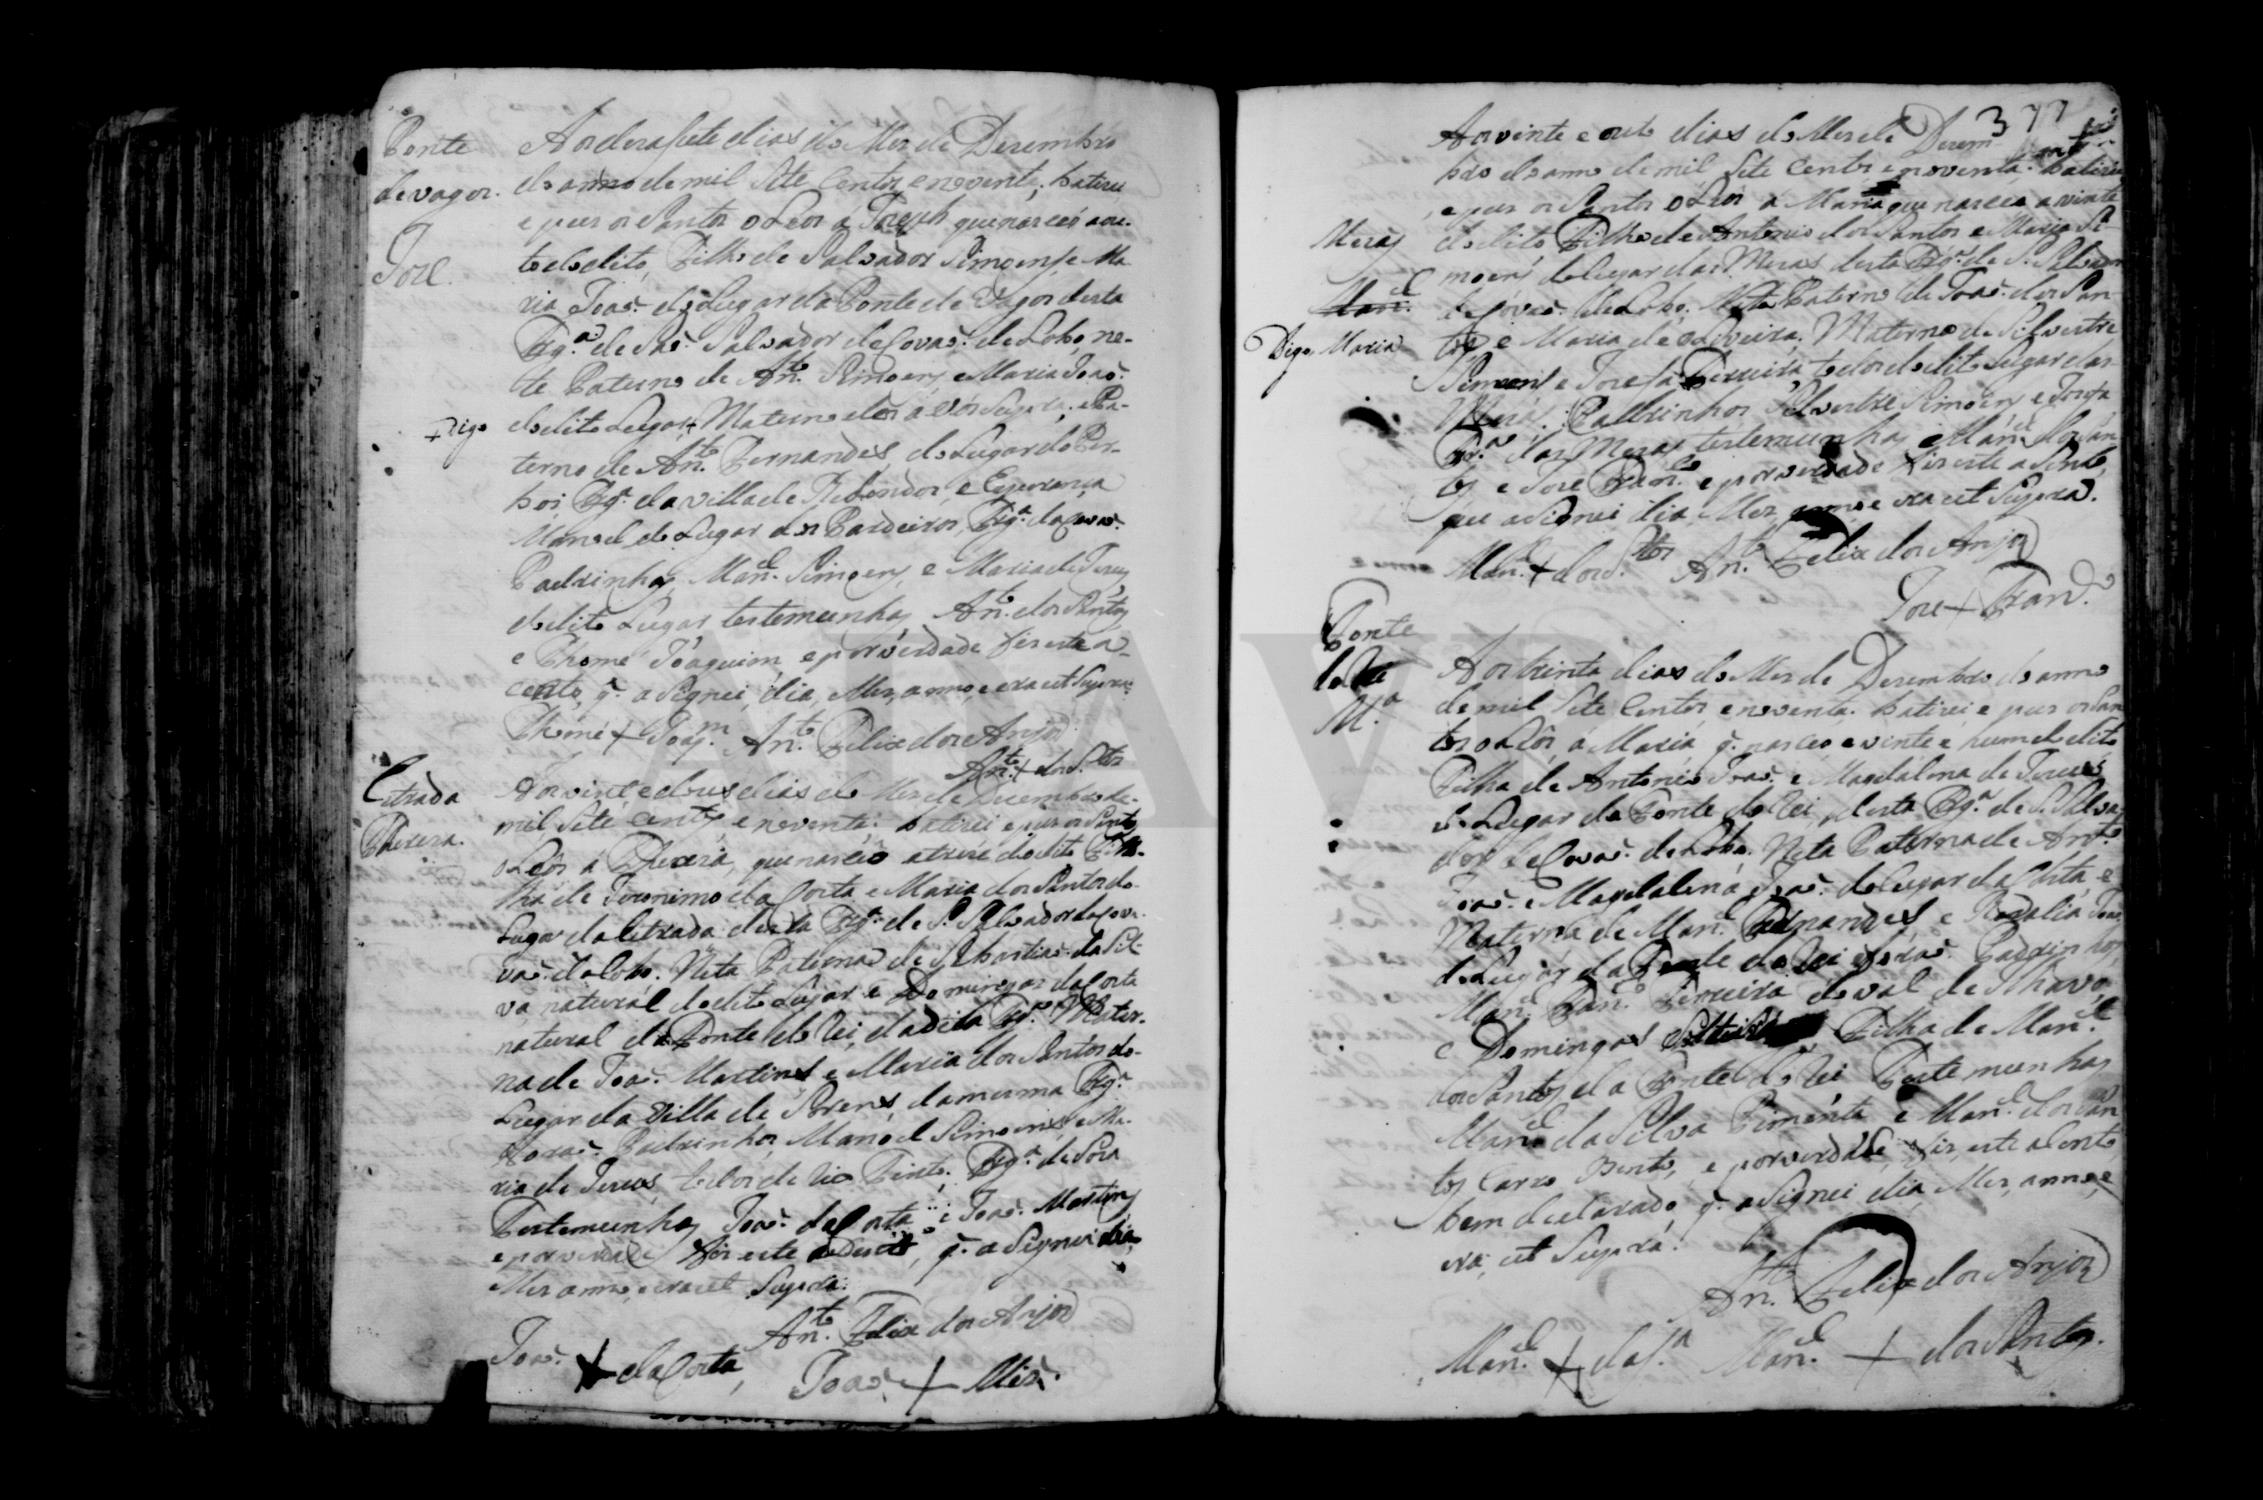 Ponte
de vagos.
Joze.
Aos dezasete dias do Mes de Dezembro
do anno de mil Sete Centos enoventa, batizei
e puz os Santos oLeos á Joseph que nasceo aou-
to do dito, Filho de Salvador Simoens, e Ma-
ria Joaõ. do Lugar da Ponte de Vagos desta
Frg.ª de Saõ Salvador de Covaõ. de Lobo, ne-
to Paterno de An.to Simoens, e Maria Joaõ.
+ Digo
do dito Lugar + Materno dos avós Supra; e Pa-
terno de An.to Fernandes, do Lugar do
Frg.ª da villa de e Esperança
Manoel do Lugar dos Cardeiros, Frg.ª do Covaõ.
Padrinhos Man.el Simoens, e Maria de Jesus
do dito Lugar testemunhas An.to dos Santos
e Thomé Joaquim, e por verdade fis este a-
cento, q. a Signei, dia, Mes, anno, e era ut Supra.
Thomé + Joaq.m An.to Felix dos Anjos
An.to + dos S.tos
Estrada
Thereza.
Aos vinte e dous dias do Mes de Dezembro de
mil Sete centos e noventa. batizei e puz os Santos
oLeos á Thereza, que nasceo a treze do dito Fi-
lha de Jeronimo da Costa e Maria dos Santos do
Lugar da Estrada desta Frg.ª de S. Salvador do Co-
vaõ. do Lobo. Neta Paterna de Sebastiaõ da Sil-
va, natural do dito Lugar e Domingas da Costa
natural da Fonte do Rei, da dita Frg.ª Mater-
na de Joaõ. Martins e Maria dos Santos do
Lugar da Villa de Sorens, da mesma Frg.ª
Padrinhos, Manoel Simoens, e Ma-
ria de Jesus, todos de rio Tinto, Frg.ª de Soza
Testemunhas Joaõ. da Costa, e Joaõ. Martins
e por verdade fis este q. a Signei dia,
Mes anno, e era ut Supra.
An.to Felix dos Anjos
Joaõ. + da Costa, Joaõ. +
377
Aos vinte e outo dias do Mes de Dezem-
bro do anno de mil Sete Centos e noventa. batizei
, e puz os Santos oLeos á Maria que nasceo a vinte
Mezas
do dito Filha de Antonio dos Santos e Maria Si-
moens do Lugar das Mezas desta Frg.ª de S. Salvador
Man.el
de Covaõ. de Lobo. Neta Paterna de Joaõ. dos San-
Digo, Maria
tos e Maria de Oliveira, Materna de Silvestre
Simoens e Josefa Ferreira todos do dito Lugar das
Mezas. Padrinhos Silvestre Simoens e Josefa
Fr.ª das Mezas testemunhas Man.el dos San-
tos e Joze e por verdade fis este a Sento,
que aSignei dia, Mes, anno, e era ut Supra.
Man.el + dos S.tos An.to Felix dos Anjos
Joze +
Fonte
do Rei
M.ª
Aos trinta dias do Mes de Dezembro do anno
de mil Sete Centos, e noventa. batizei e puz os San-
tos oLeos á Maria, q. nasceo a vinte e hum do dito
Filha de Antonio Joaõ. e Magdalena de Jesus
do Lugar da Fonte do Rei, desta Frg.ª de S. Salva-
dor de Covaõ. de Lobo. Neta Paterna de An.to
Joaõ. e Magdalena Joaõ. do Lugar da Costa e
Materna de Man.el Fernandes, e Rozalia Joaõ.
do Lugar da Fonte do Rei Padrinhos,
Man.el Ferreira do val de
e Domingas Filha de Man.el
dos Santos da Fonte do Rei Testemunhas
Man.el da Silva Pimenta e Man.el dos San-
tos e por verdade, fis, este aSento,
bem declarado, q. aSignei dia, Mes, anno, e
era, ut Supra.
An.to Felix dos Anjos
Man.el + da S.ª Man.el + dos Santos.
ADAVR